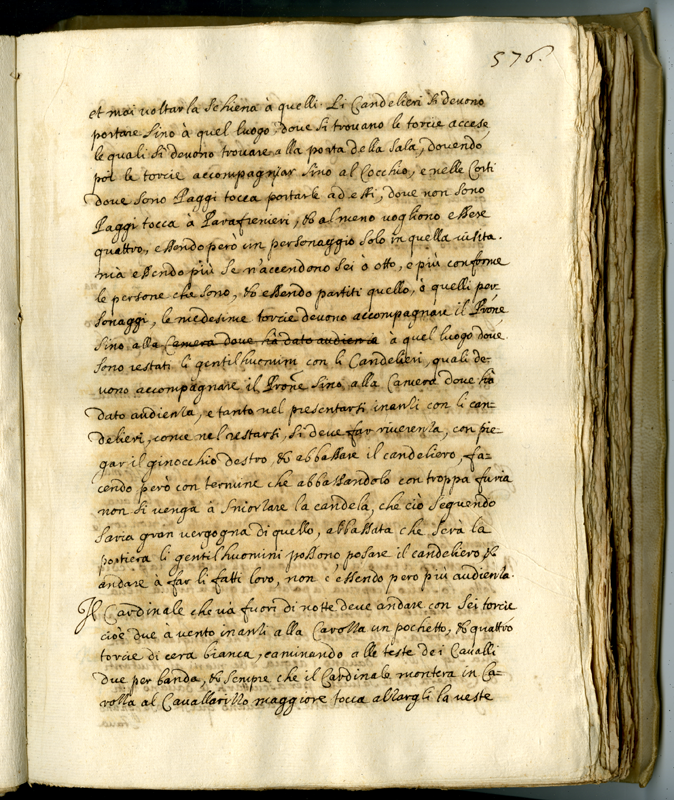 576.
et mai voltar la schiena à quelli. Li Candelieri si devono
portare sino à quel luogo dove si trovano le torcie accese,
le quali si devono trovare alla porta della sala, dovendo
poi le torcie accompagniar sino al Cocchio, e nelle Corti
dove sono Paggi tocca portarle ad essi, dove non sono
Paggi tocca à Parafrenieri, & almeno vogliono essere
quattro, essendo però un personaggio solo in quella visita.
mà essendo più se n'accendono sei ò otto, e più conforme
le persone che sono, & essendo partiti quello, ò quelli per
sonaggi, le medesime torcie devono accompagnare il Prone
sino alla Camera dove ha dato audienza à quel luogo dove
sono restati li gentilhuomini con li Candelieri, quali de-
vono accompagnare il Prone sino alla Camera dove hà
dato audienza, e tanto nel presentarsi inanzi con li can-
delieri, come nel restarsi, si deve far riverenza, con pie-
gar il ginocchio destro & abbassare il candeliero, fa-
cendo però con termine che abbassandolo con troppa furia
non si venga à smorzare la candela, che ciò seguendo
saria gran vergogna di quello, abbassata che serà la
portiera li gentilhuomini possono posare il candeliero, &
andare à far li fatti loro, non c essendo pero più audienza.
Il Cardinale che và fuori di notte deve andare con sei torcie
cioè due à vento inanzi alla Carozza un pochetto, & quattro
torcie di cera bianca, caminando alle teste dei Cavalli
due per banda, & sempre che il Cardinale montera in Ca-
rozza al Cavallarizzo maggiore tocca alzargli la veste